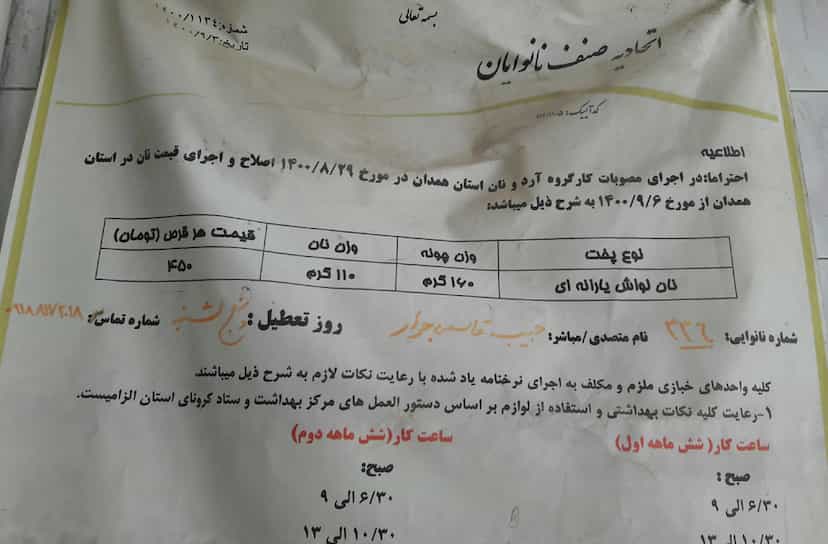 بسمه تعالی
شماره: ۱۴۰۰/۱۱۳۴
تاریخ: ۱۴۰۰/۹/۳
اتحادیه صنف نانوایان
کد آیسیک:
اطلاعیه
احتراما:در اجرای مصوبات کارگروه آرد و نان استان همدان در مورخ ۱۴۰۰/۸/۲۹ اصلاح و اجرای قیمت نان در استان
همدان از مورخ ۱۴۰۰/۹/۶ به شرح ذیل میباشد:
نوع پخت وزن چونه وزن نان قیمت هر قرص (تومان)
نان لواش یارانه ای ۱۶۰ گرم ۱۱۰ گرم ۴۵۰
شماره نانوایی: ۳۳۶ نام متصدی/مباشر: حبیب روز تعطیل: پنج شنبه شماره تماس:
کلیه واحدهای خبازی ملزم و مکلف به اجرای نرخنامه یاد شده با رعایت نکات لازم به شرح ذیل میباشند.
۱-رعایت کلیه نکات بهداشتی و استفاده از لوازم بر اساس دستور العمل های مرکز بهداشت و ستاد کرونای استان الزامیست.
ساعت کار( شش ماهه اول) ساعت کار(شش ماهه دوم)
صبح: صبح:
۶/۳۰ الی ۹ ۶/۳۰ الی ۹
۱۰/۳۰ الی ۱۳ ۱۰/۳۰ الی ۱۳